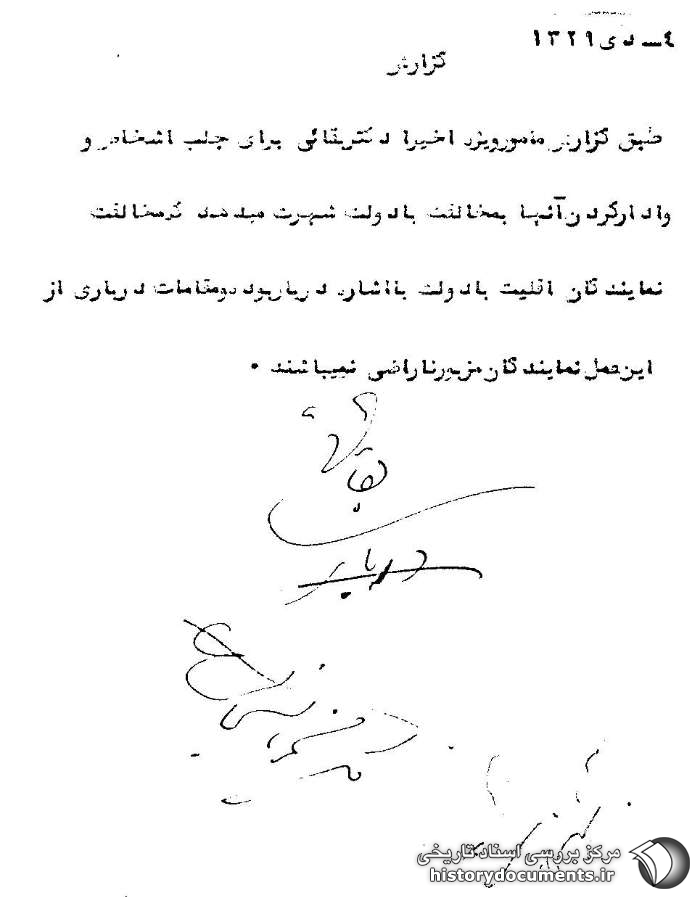 ۴ــ دی ۱۳۲۹
گزارش
طبق گزارش مامورویژه اخیرا دکتربقائی برای جلب اشخاص و
وادارکردن آنها بمخالفت بادولت شهرت میدهد که مخالفت
نمایندگان اقلیت بادولت بااشاره درباربوده ومقامات درباری از
این عمل نمایندگان مزبورناراضی نمیباشند .
بقائی
دربار
مرکز بررسی اسناد تاریخی
historydocuments.ir